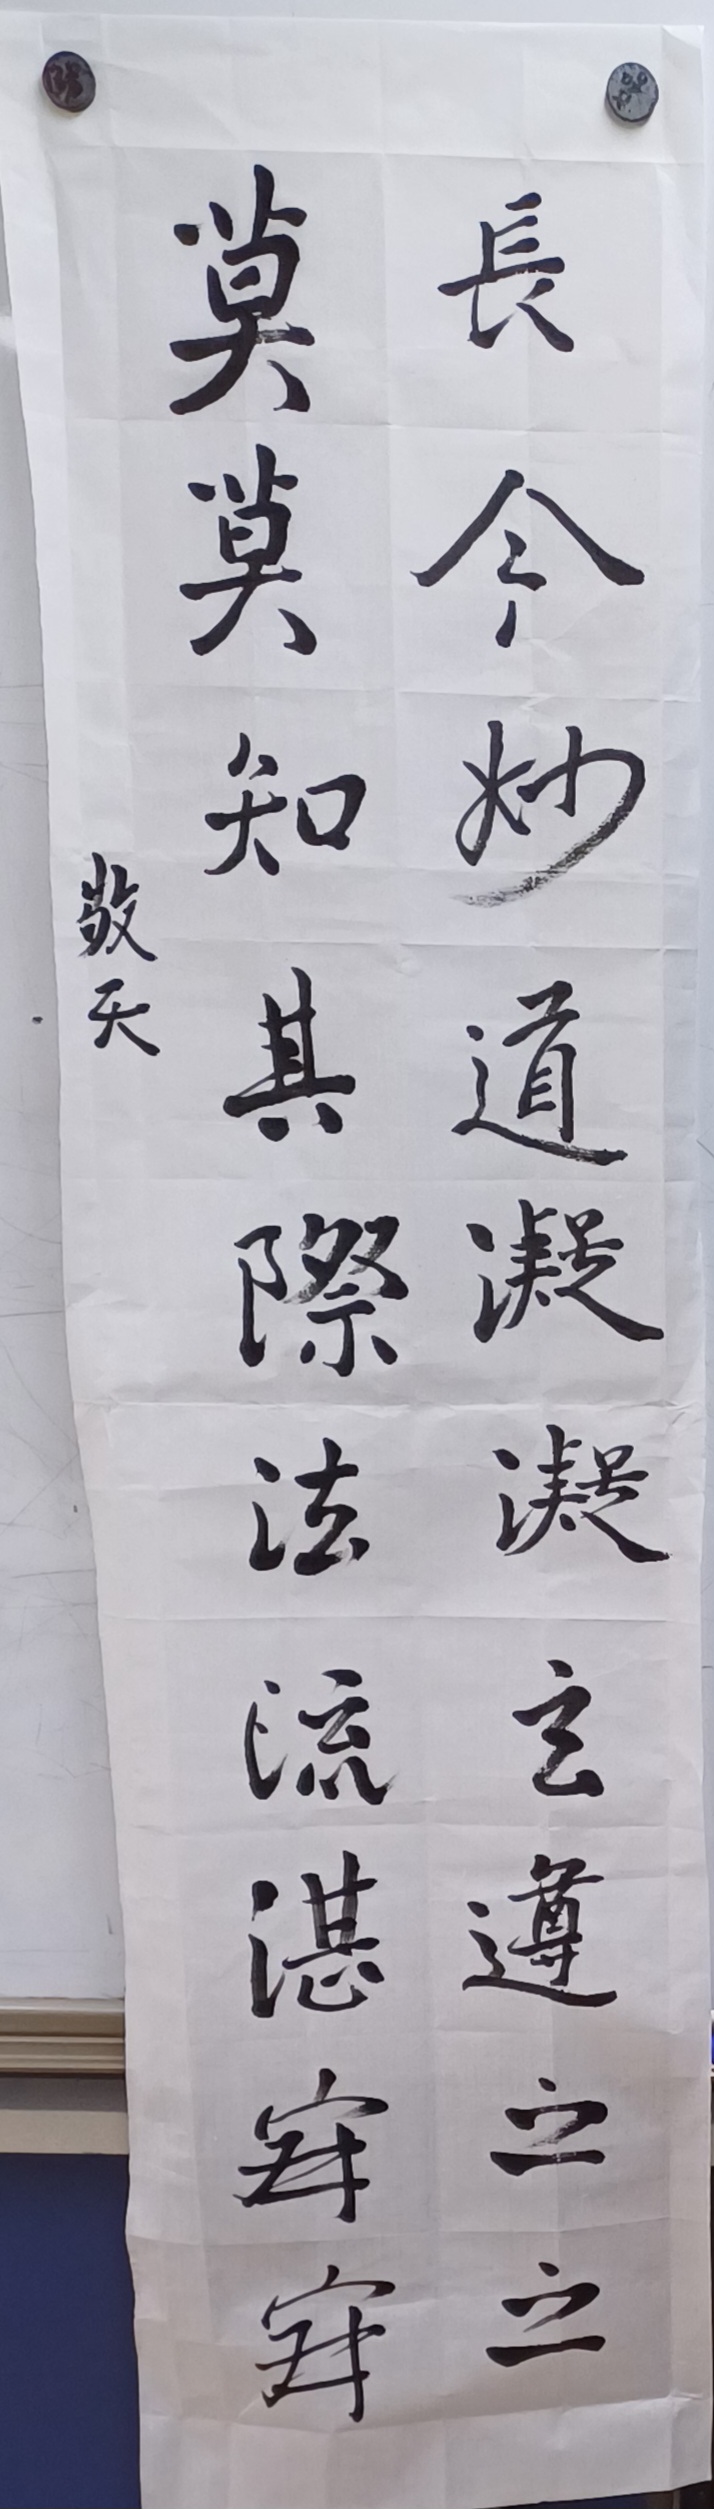 長今妙道凝凝玄遵之之
莫莫知其際法流湛寂寂
敬天